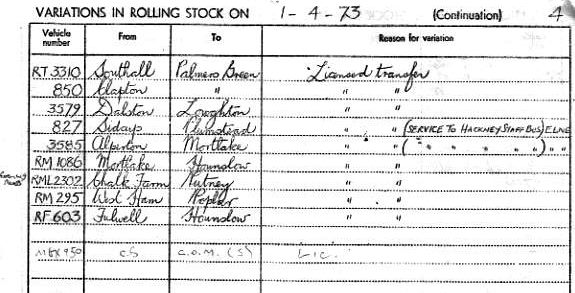 VARIATIONS IN ROLLING STOCK ON 1-4-73 (Continuation) 4
Vehicle number From To Reason for variation
RT 3310 Southall Palmers Green Licensed transfer
850 Clapton " " "
3579 Dalston Loughton " "
827 Sidcup Plumstead " " (SERVICE TO HACKNEY STAFF BUS) ELNE
3585 Alperton Mortlake " " ( " " " " ) " "
RM 1086 Mortlake Hounslow " "
RML 2302 Chalk Farm Putney " "
RM 295 West Ham Poplar " "
RF 603 Fulwell Hounslow " "
CS C.O.M. (S) Lic.